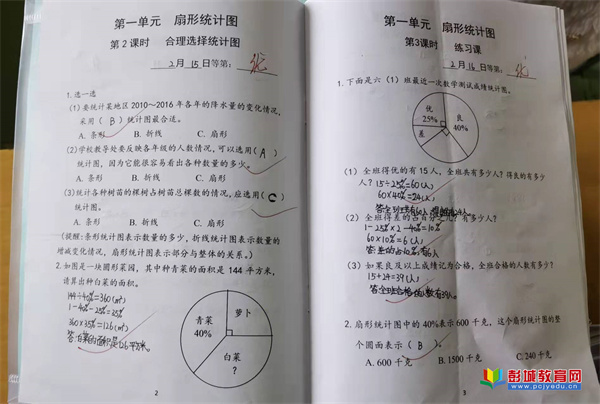 第一单元 扇形统计图
第2课时 合理选择统计图
2月15日等第: 优
1.选一选
(1)要统计某地区2010~2016年各年的降水量的变化情况,
采用( B )统计图最合适。
A. 条形 B. 折线 C. 扇形
(2)学校教导处要反映各年级的人数情况,可以选用( A )
统计图,因为它能很容易看出各种数量的多少。
A. 条形 B. 折线 C. 扇形
(3)统计各种树苗的棵树占树苗总棵数的情况,应选用( C )
统计图。
A. 条形 B. 折线 C. 扇形
(提醒:条形统计图表示数量的多少,折线统计图表示数量的
增减变化情况,扇形统计图表示部分与整体的关系。)
2.如图是一块圆形菜园,其中种青菜的面积是144平方米,
请算出种白菜的面积。
144÷40%=360(m²)
1-40%-25%=35%
360×35%=126(m²)
答:白菜的面积是126平方米。
青菜
40%
萝卜
白菜
?
2
第一单元 扇形统计图
第3课时 练习课
2月16日等第: 优
1.下面是六(1)班最近一次数学测试成绩统计图。
优
25%
良
40%
差
(1)全班得优的有15人,全班共有多少人?得良的有多少
人? 15÷25%=60(人)
60×40%=24(人)
(2)全班得差的占百分之几?有多少人?
60×10%=6(人)
(3)如果良及以上成绩记为合格,全班合格的人数有多少人?
15+24=39(人)
答:全班合格的人数有39人。
2.扇形统计图中的40%表示600千克,这个扇形统计图的整
个圆面表示( B )
A. 600千克 B. 1500千克 C. 240千克
3
彭城教育网
www.pcjyedu.cn